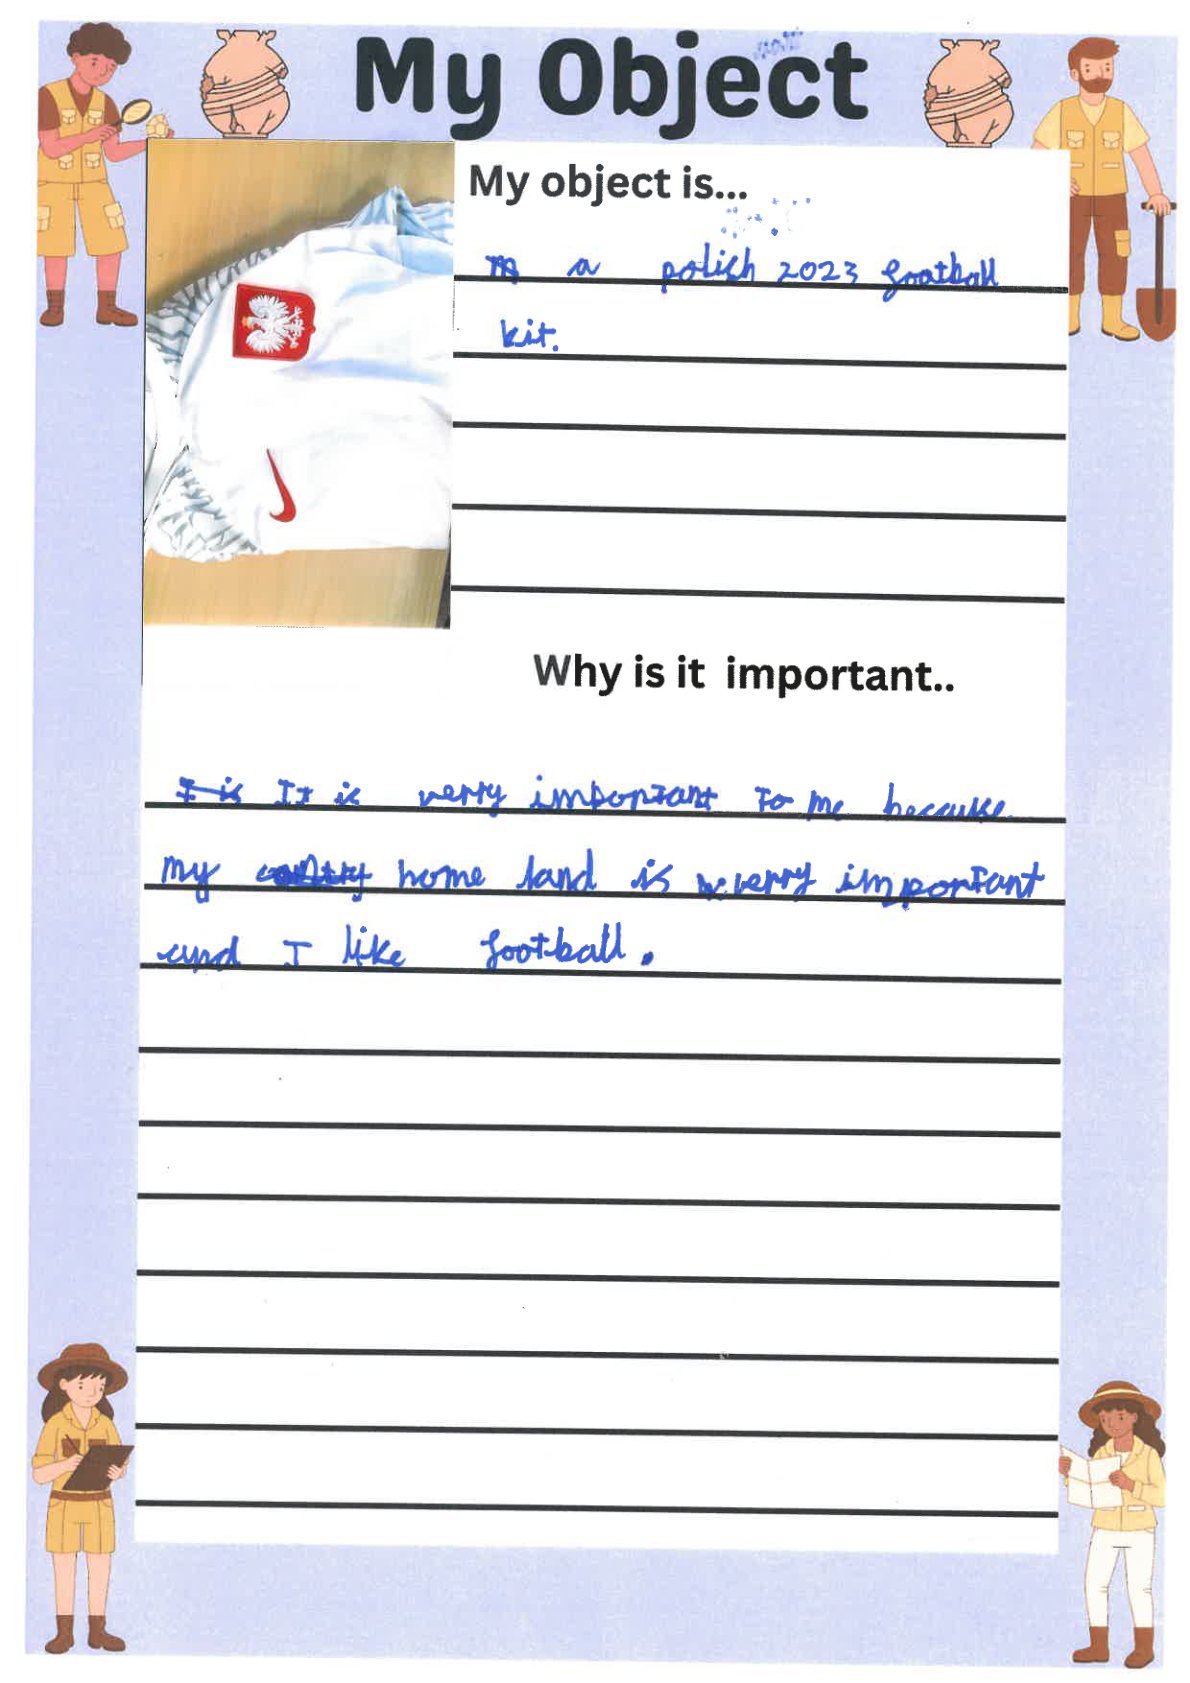 My Object
My object is...
a polish 2023 football
kit.
Why is it important..
I is It is verry important to me because
my contry home land is verry important
and I like football.